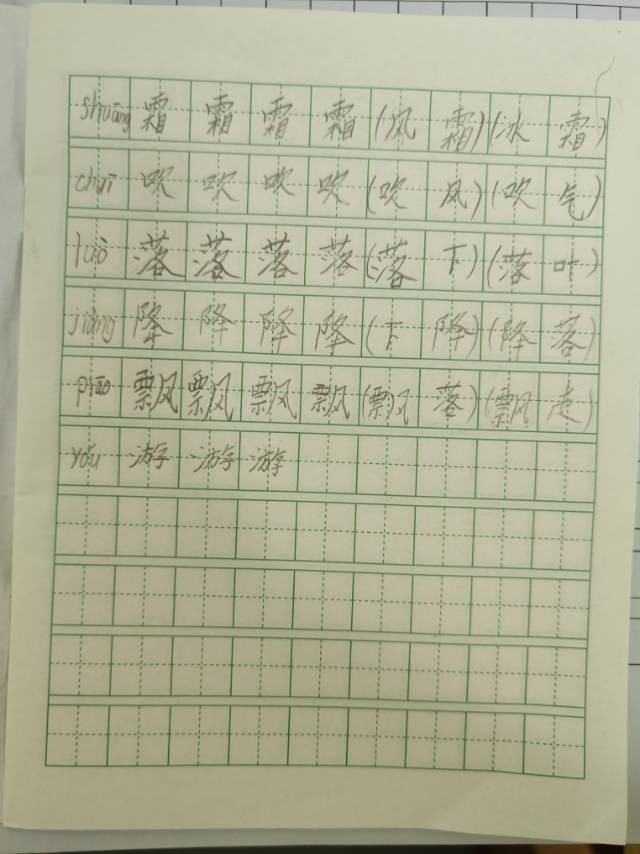 shuāng 霜 霜 霜 霜 (风 霜) (冰 霜)
chuī 吹 吹 吹 吹 (吹 风) (吹 气)
luò 落 落 落 落 (落 下) (落 叶)
jiàng 降 降 降 降 (下 降) (降 落)
piāo 飘 飘 飘 飘 (飘 落) (飘 走)
yóu 游 游 游